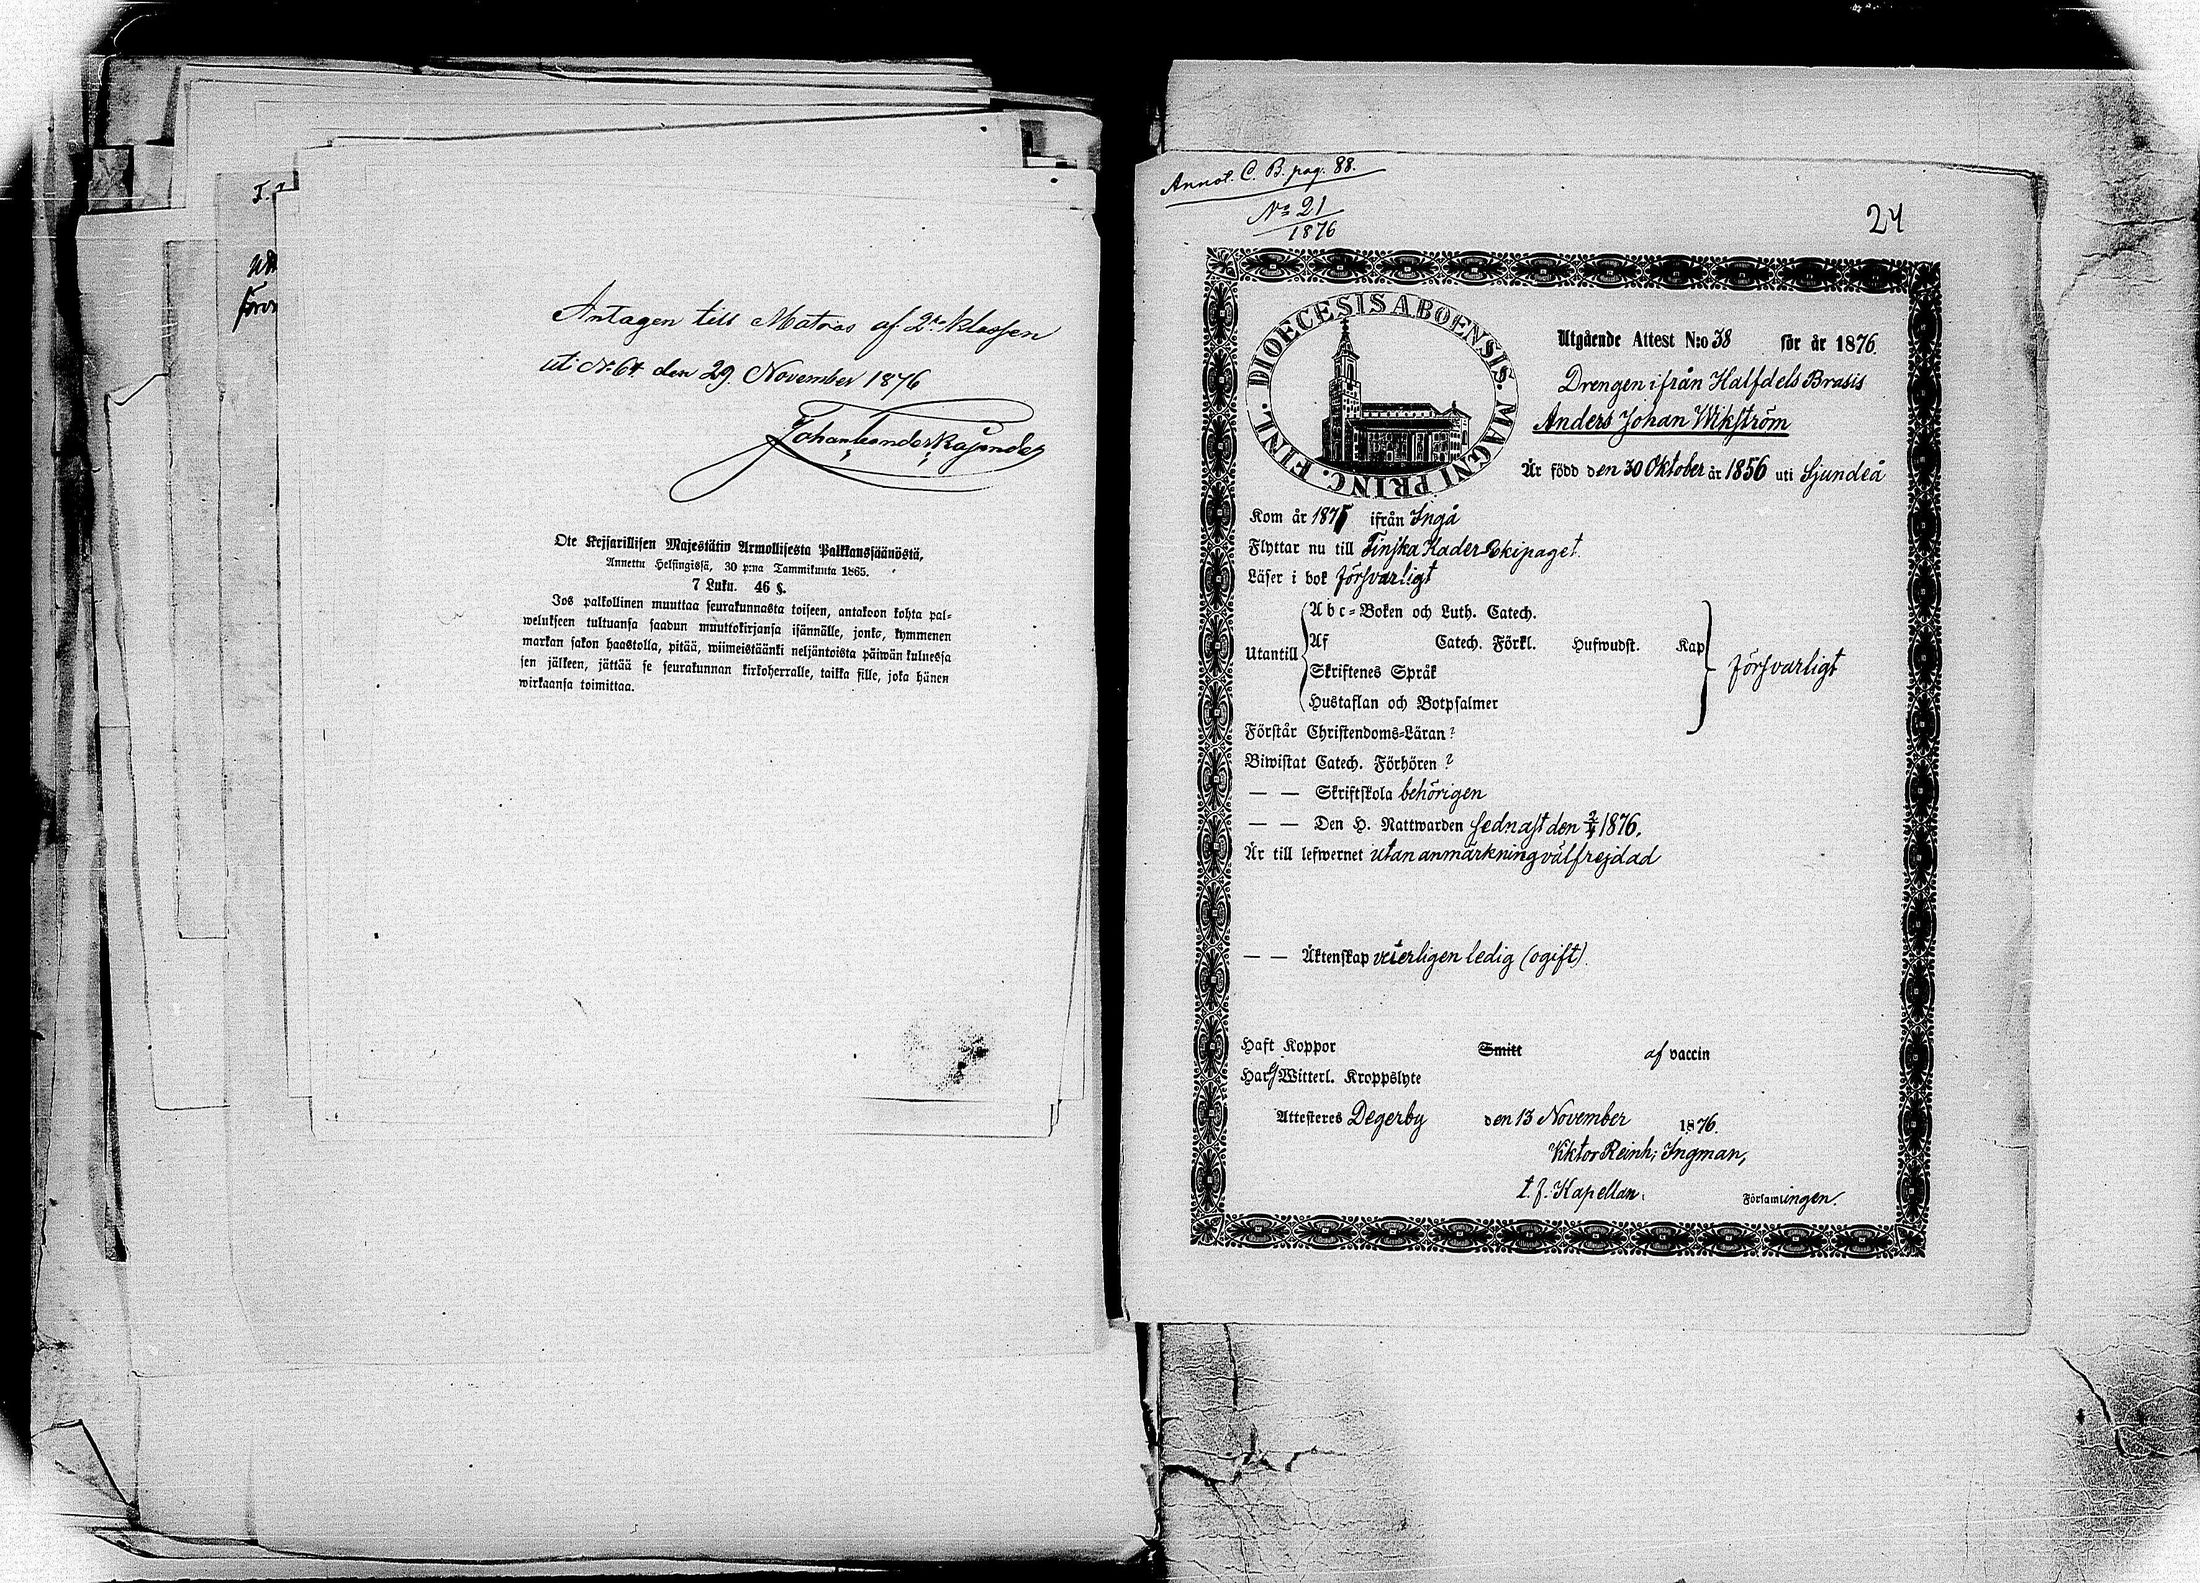 Antagen till Matros af 2:a klassen
uti N:o 64 den 29 November 1876
Ote Keisarillisen Majestätin Armollisesta Palkkaussäänöstä,
Annettu Helsingissä, 30 p:na Tammikuuta 1865.
7 Luku. 46 §.
Jos palkollinen muuttaa seurakunnasta toiseen, antakoon kohta pal-
welukseen tultuansa saadun muuttokirjansa isännälle, jonka, kymmenen
markan sakon haastolla, pitää, wiimeistäänki neljäntoista päiwän kuluessa
sen jälkeen, jättää se seurakunnan kirkoherralle, taikka sille, joka hänen
wirkaansa toimittaa.
Annot. C. B. pag. 88.
No 21
1876
24
DIOECESIS ABOENSIS. MAGNI PRINC. FINL.
Utgående Attest N:o 38 för år 1876.
Drengen ifrån Halfdels Brasis
Anders Johan Wikström
Är född den 30 Oktober år 1856 uti Sjundeå
Kom år 1875 ifrån Ingå
Flyttar nu till Finska Kader-Ekipaget.
Läser i bok försvarligt
Utantill
Abc-Boken och Luth. Catech.
Af Catech. Förkl. Hufwudst. Kap
Skriftenes Språk
Hustaflan och Botpsalmer
försvarligt
Förstår Christendoms-Läran?
Biwistat Catech. Förhören?
— — Skriftskola behörigen
— — Den H. Nattwarden sednast den 2/4 1876.
Är till lefwernet utan anmärkning välfrejdad
— — Äktenskap veterligen ledig (ogift).
Haft Koppor Smitt af vaccin
Har ej Witterl. Kroppslyte
Attesteres Degerby den 13 November 1876.
Viktor Reinh: Ingman,
t. f. Kapellan. Församlingen.